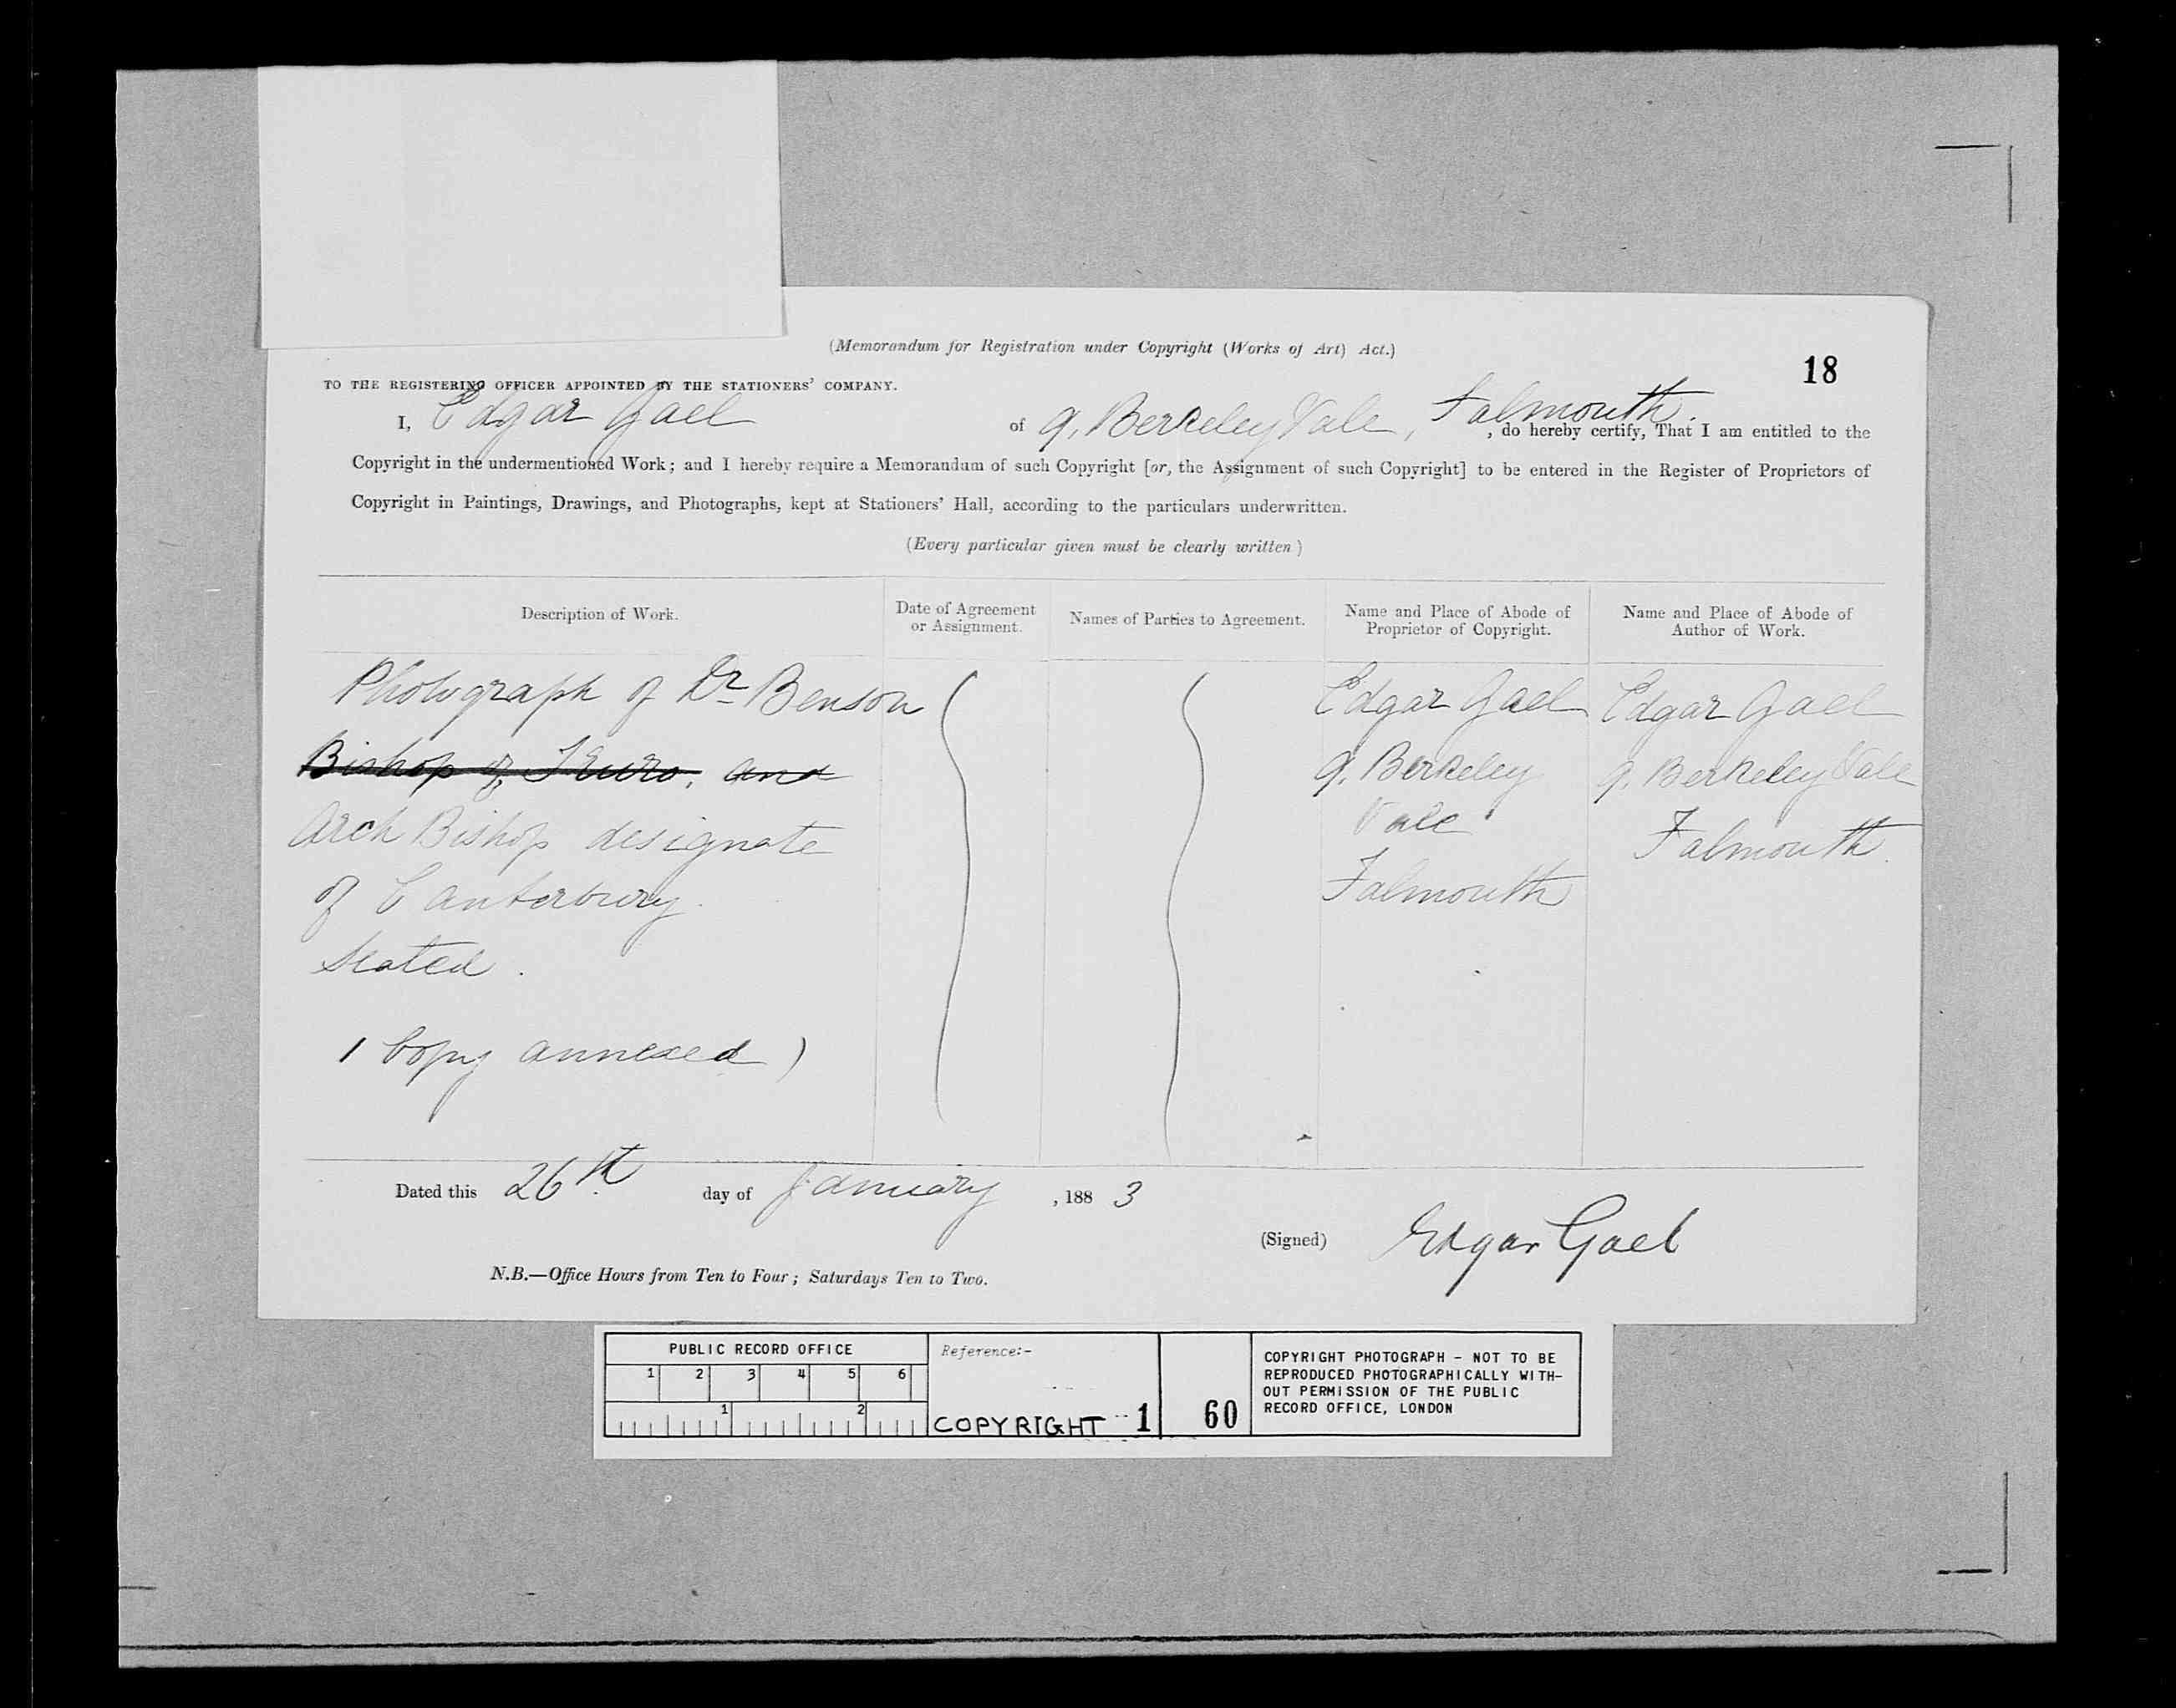 (Memorandum for Registration under Copyright (Works of Art) Act.)
18
TO THE REGISTERING OFFICER APPOINTED BY THE STATIONERS' COMPANY.
I, Edgar Gael of 9, Berkeley Vale, Falmouth. , do hereby certify, That I am entitled to the
Copyright in the undermentioned Work; and I hereby require a Memorandum of such Copyright [or, the Assignment of such Copyright] to be entered in the Register of Proprietors of
Copyright in Paintings, Drawings, and Photographs, kept at Stationers' Hall, according to the particulars underwritten.
(Every particular given must be clearly written)
Description of Work.
Photograph of Dr Benson
Bishop of Truro, and
Arch Bishop designate
of Canterbury.
Seated.
1 Copy annexed )
Date of Agreement
or Assignment.
Names of Parties to Agreement.
Name and Place of Abode of
Proprietor of Copyright.
Edgar Gael
9, Berkeley
Vale
Falmouth
Name and Place of Abode of
Author of Work.
Edgar Gael
9, Berkeley Vale
Falmouth.
Dated this 26th day of January , 1883
(Signed) Edgar Gael
N.B.—Office Hours from Ten to Four; Saturdays Ten to Two.
PUBLIC RECORD OFFICE
1 2 3 4 5 6
1 2
Reference:-
COPYRIGHT 1 60
COPYRIGHT PHOTOGRAPH - NOT TO BE
REPRODUCED PHOTOGRAPHICALLY WITH-
OUT PERMISSION OF THE PUBLIC
RECORD OFFICE, LONDON